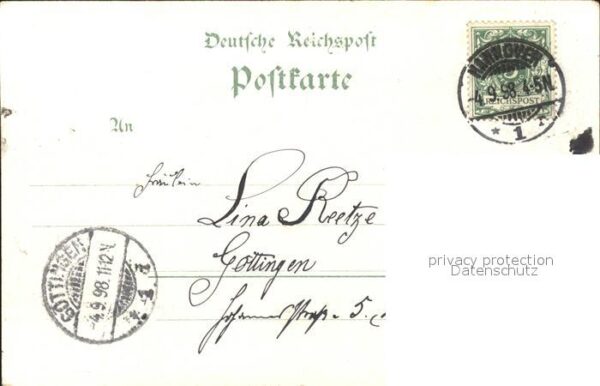 Deutsche Reichspost
Postkarte
HANNOVER
4.9.98.4-5N.
* 1 *
REICHSPOST
An
Fräulein
Lina Reetze
Göttingen
Johannesstraße 5.
GÖTTINGEN
4.9.98.11-12N.
* 1
privacy protection
Datenschutz